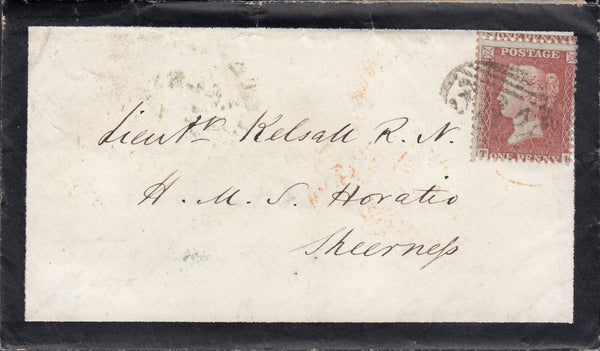 ONE PENNY
POSTAGE
T ONE PENNY
Lieunt Kelsall R. N.
H. M. S. Horatio
Sheerness